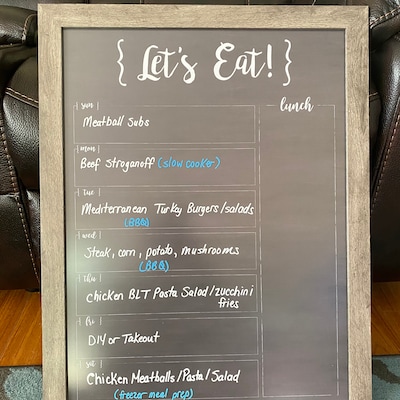 { Let's Eat! }
lunch
sun
Meatball Subs
mon
Beef Stroganoff (slow cooker)
tue
Mediterranean Turkey Burgers/salads
(BBQ)
wed
Steak, corn, potato, mushrooms
(BBQ)
thu
Chicken BLT Pasta Salad/zucchini
fries
fri
DIY or Takeout
sat
Chicken Meatballs/Pasta/Salad
(freezer meal prep)